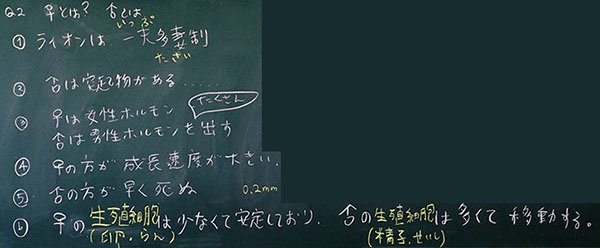 Q2 ♀とは? ♂とは
① ライオンは 一夫多妻制
いっぷ
たさい
② ♂は突起物がある......
③ ♀は女性ホルモン
たくさん
♂は男性ホルモンを出す
④ ♀の方が成長速度が大きい.
⑤ ♂の方が早く死ぬ
0.2mm
⑥ ♀の生殖細胞は少なくて安定しており、♂の生殖細胞は多くて移動する。
(卵・らん) (精子.せいし)